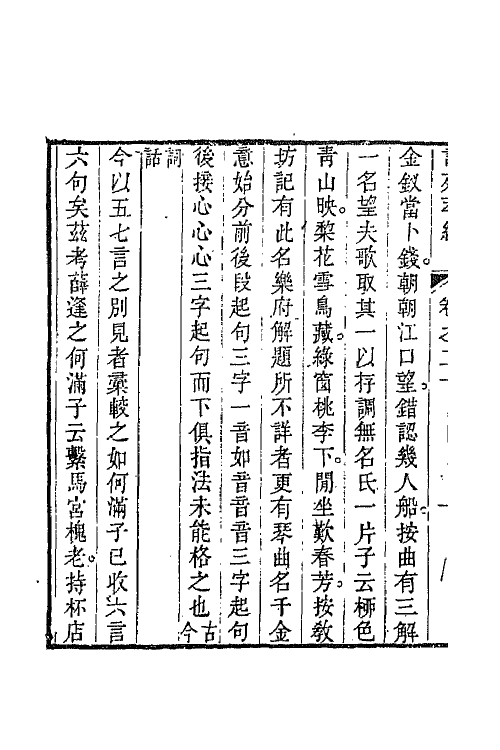 金釵當卜錢朝朝江口望。錯認幾人船。按曲有三解
一名望夫歌取其一以存調無名氏一片子云柳色
青山映。棃花雪鳥藏。綠窗桃李下。閒坐歎春芳。按敎
坊記有此名樂府解題所不詳者更有琴曲名千金
意始分前後段起句三字一音如音音音三字起句
後接心心心三字起句而下俱指法未能格之也古今
詞話
今以五七言之別見者彙較之如何滿子已收六言
六句矣茲考薛逢之何滿子云繫馬宮槐老。持杯店